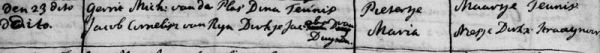 Den 23 dito Gerrit Mich: van der Plas Dina Teunis Pietertje Maartje Teunis
Dito Jacob Cornelisz van Ryn Dirkje Jac van Duyn Maria Dirkz